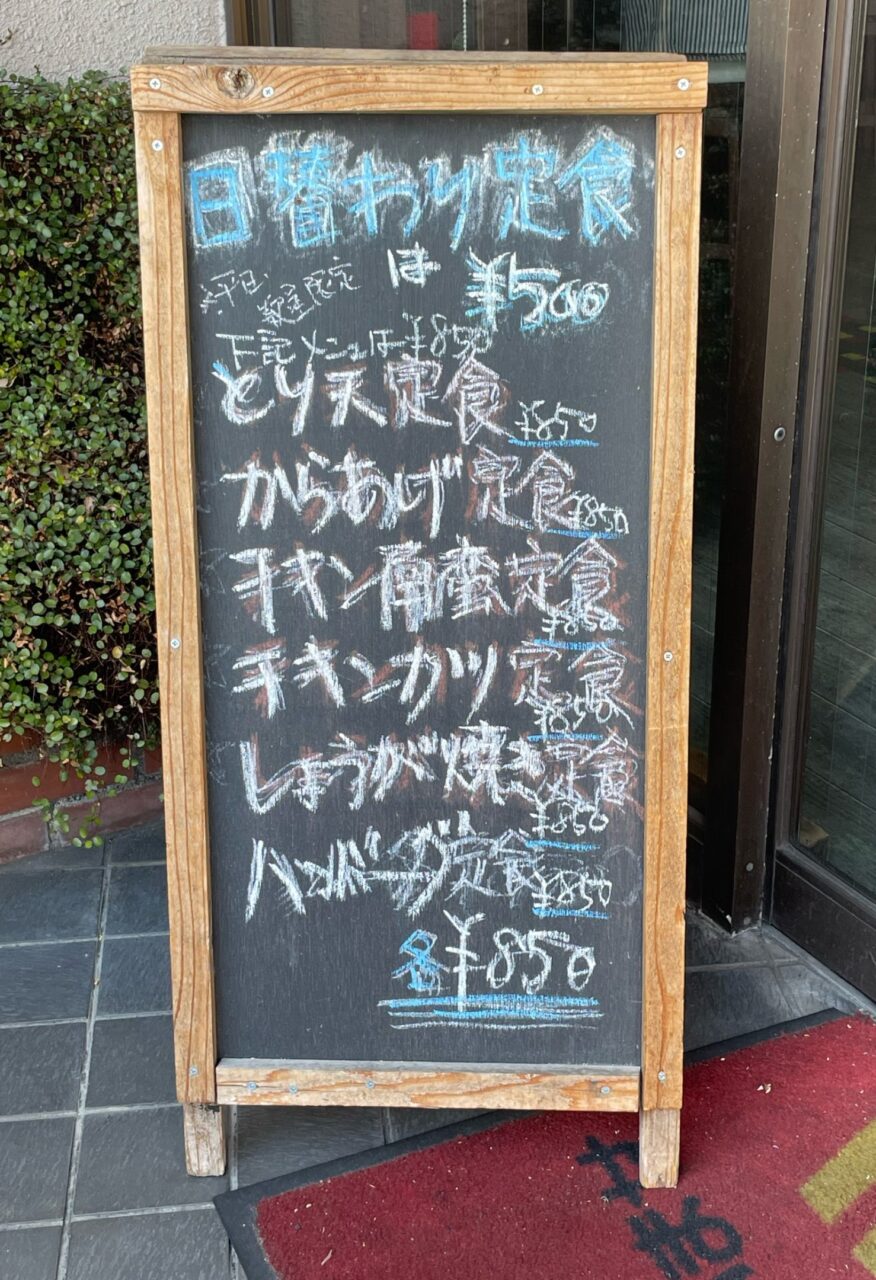 日替わり定食
は ¥500
※平日、
数量限定
下記メニューは¥850
とり天定食 ¥850
からあげ定食 ¥850
チキン南蛮定食
¥850
チキンカツ定食
¥850
しょうが焼き定食
¥850
ハンバーグ定食 ¥850
各¥850